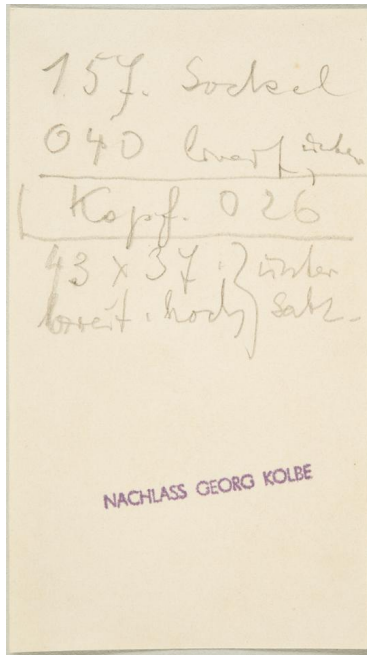 157. Sockel
040 breit
Kopf. 026
43 x 37. } unter
breit. hoch } satz.
NACHLASS GEORG KOLBE